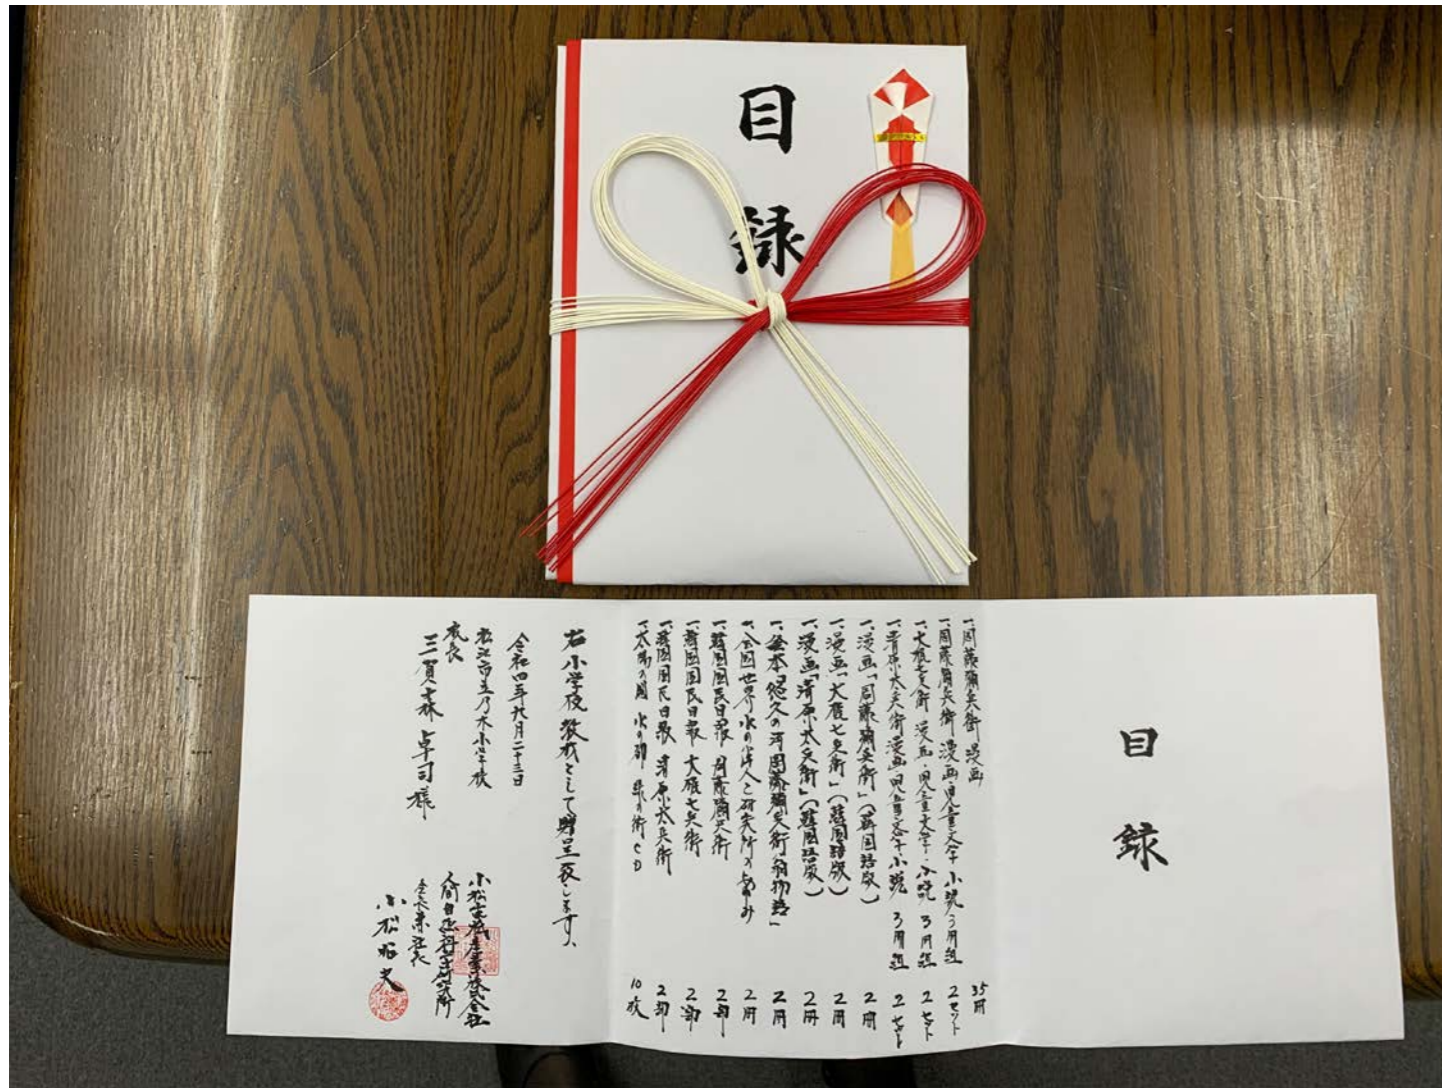 目録
目録
一、周藤彌兵衛 漫画 35冊
一、周藤彌兵衛 漫画 児童文学 小説 3冊組 2セット
一、大梶七兵衛 漫画・児童文学・小説 3冊組 2セット
一、清原太兵衛 漫画 児童文学 小説 3冊組 2セット
一、漫画「周藤彌兵衛」(韓国語版) 2冊
一、漫画「大梶七兵衛」(韓国語版) 2冊
一、漫画「清原太兵衛」(韓国語版) 2冊
一、絵本「悠久の河周藤彌兵衛翁物語」 2冊
一、全国世界水の偉人と研究所の歩み 2冊
一、韓国国民日報 周藤彌兵衛 2部
一、韓国国民日報 大梶七兵衛 2部
一、韓国国民日報 清原太兵衛 2部
一、太陽の国 水の都 緑の街 CD 10枚
右小学校教材として贈呈致します。
令和四年九月二十三日
松江市立乃木小学校
校長
三賀森卓司様
小松電機産業株式会社
人間自然科学研究所
会長兼社長
小松昭夫